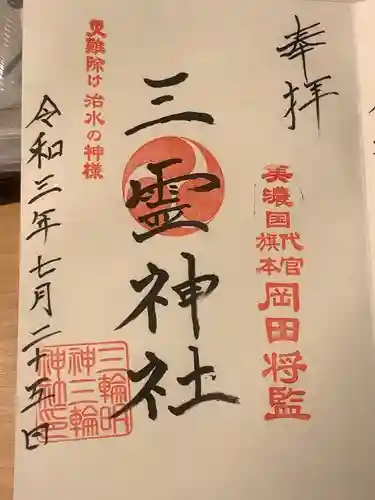 奉拝
美濃国
代官
旗本
岡田将監
三霊神社
災難除け 治水の神様
令和三年七月二十五日
三輪明
神三輪
神社印